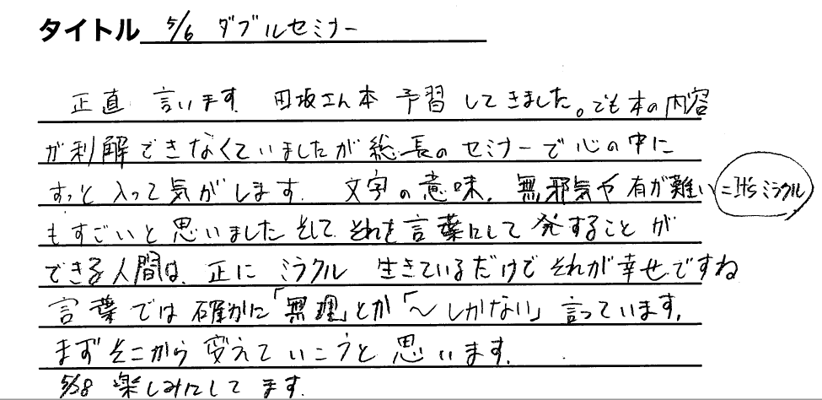 タイトル 5/6 ダブルセミナー
正直 言います 田坂さん本 予習 してきました。でも本の内容
が利解できなくていましたが総長のセミナーで心の中に
すっと入って気がします. 文字の意味. 無邪気や有が難い=It's ミラクル
もすごいと思いましたそしてそれを言葉にして発することが
できる人間は. 正に ミラクル 生きているだけでそれが幸せですね
言葉では確かに「無理」とか「〜しかない」言っています.
まずそこから変えていこうと思います.
5/28 楽しみにしてます.